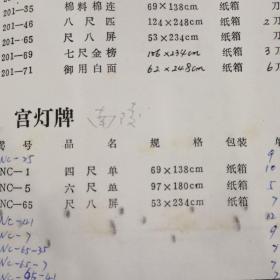 201-35 棉料棉连 69×138cm 纸箱 2刀
201-46 八尺匹 124×248cm 纸箱
201-65 尺八屏 53×234cm 纸箱
201-69 七尺金榜 106×234cm 纸箱 3刀
201-71 御用白面 62×248cm 纸箱
宫灯牌
号 品名 规格 包装 单
NC-25 9
NC-1 四尺单 69×138cm 纸箱 10
NC-5 六尺单 97×180cm 纸箱 5
NC-65 尺八屏 53×234cm 纸箱 7
12
NC-7 9
NC-65-35
NC-65-7